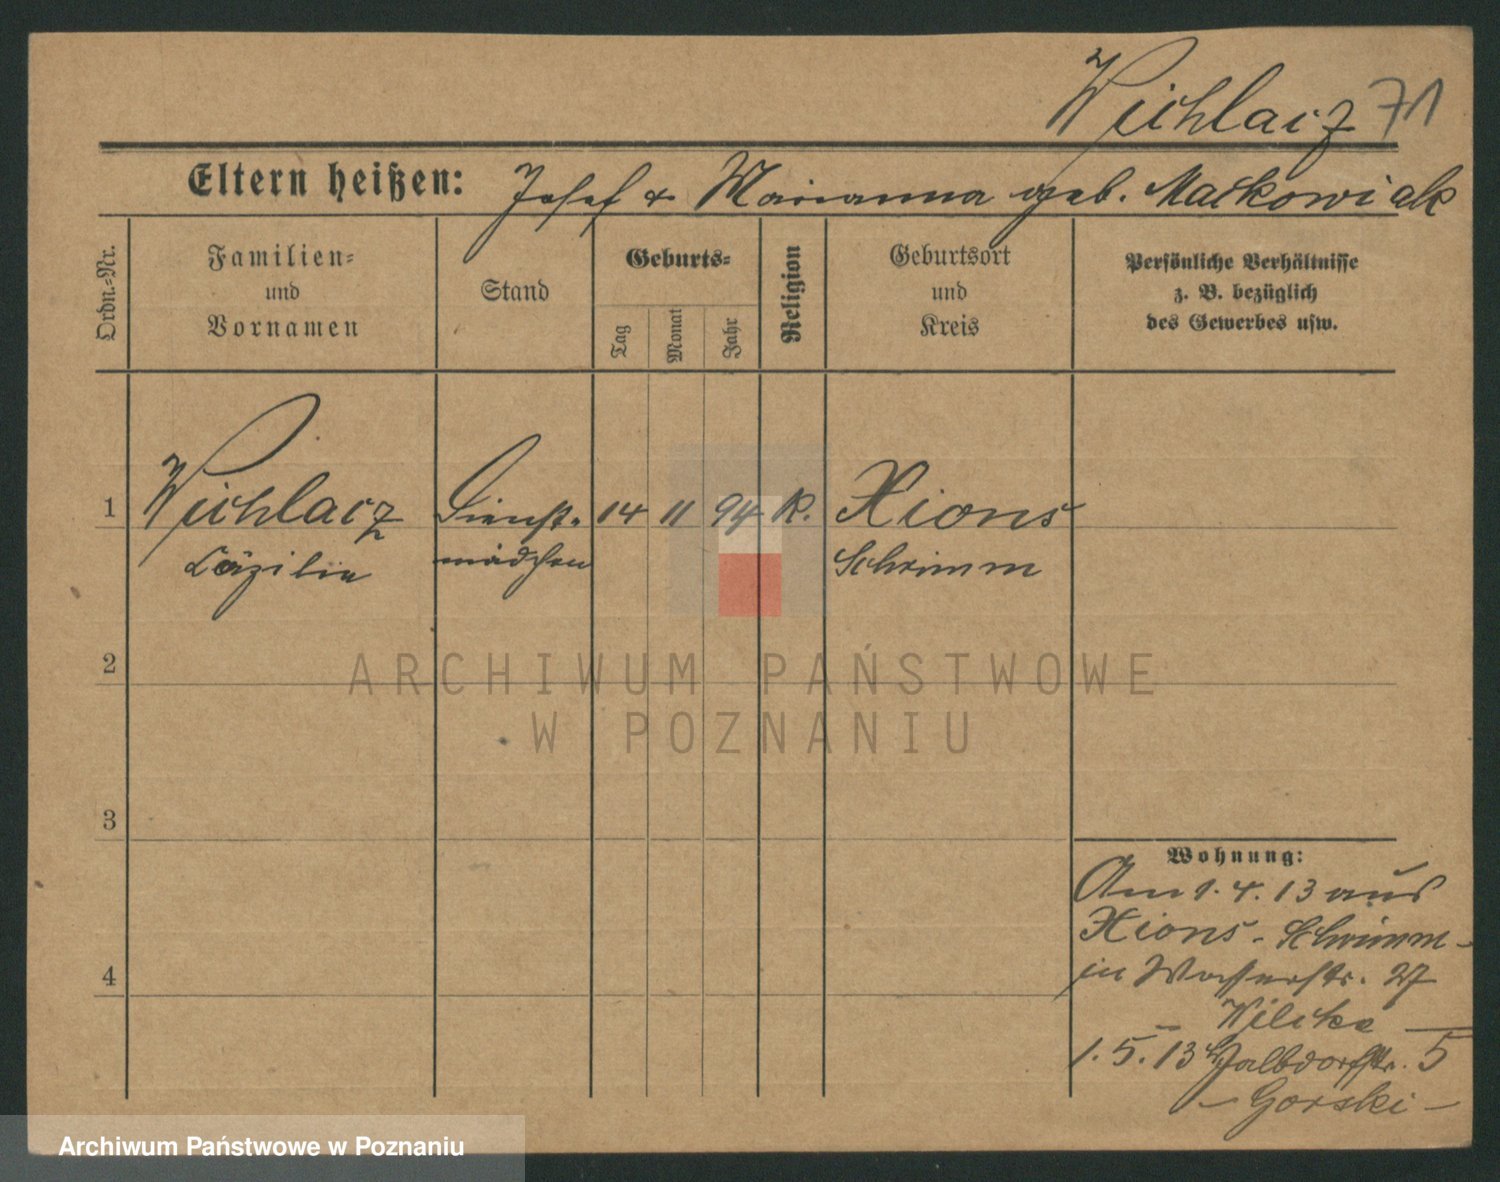 Wichlacz 71
Eltern heißen: Josef & Marianna geb. Maćkowiak
Ordn.=Nr.
Familien=
und
Vornamen
Stand
Geburts=
Tag
Monat
Jahr
Religion
Geburtsort
und
Kreis
Persönliche Verhältnisse
z. B. bezüglich
des Gewerbes usw.
1 Wichlacz Dienst= 14 11 94 K. Xions
Cäzilie mädchen Schrimm
2
ARCHIWUM PAŃSTWOWE
W POZNANIU
3
Wohnung:
Am 1. 4. 13 aus
Xions - Schrimm -
4
in Wasserstr. 27
- Wilcke -
1. 5. 13 Halbdorfstr. 5
- Gorski -
Archiwum Państwowe w Poznaniu